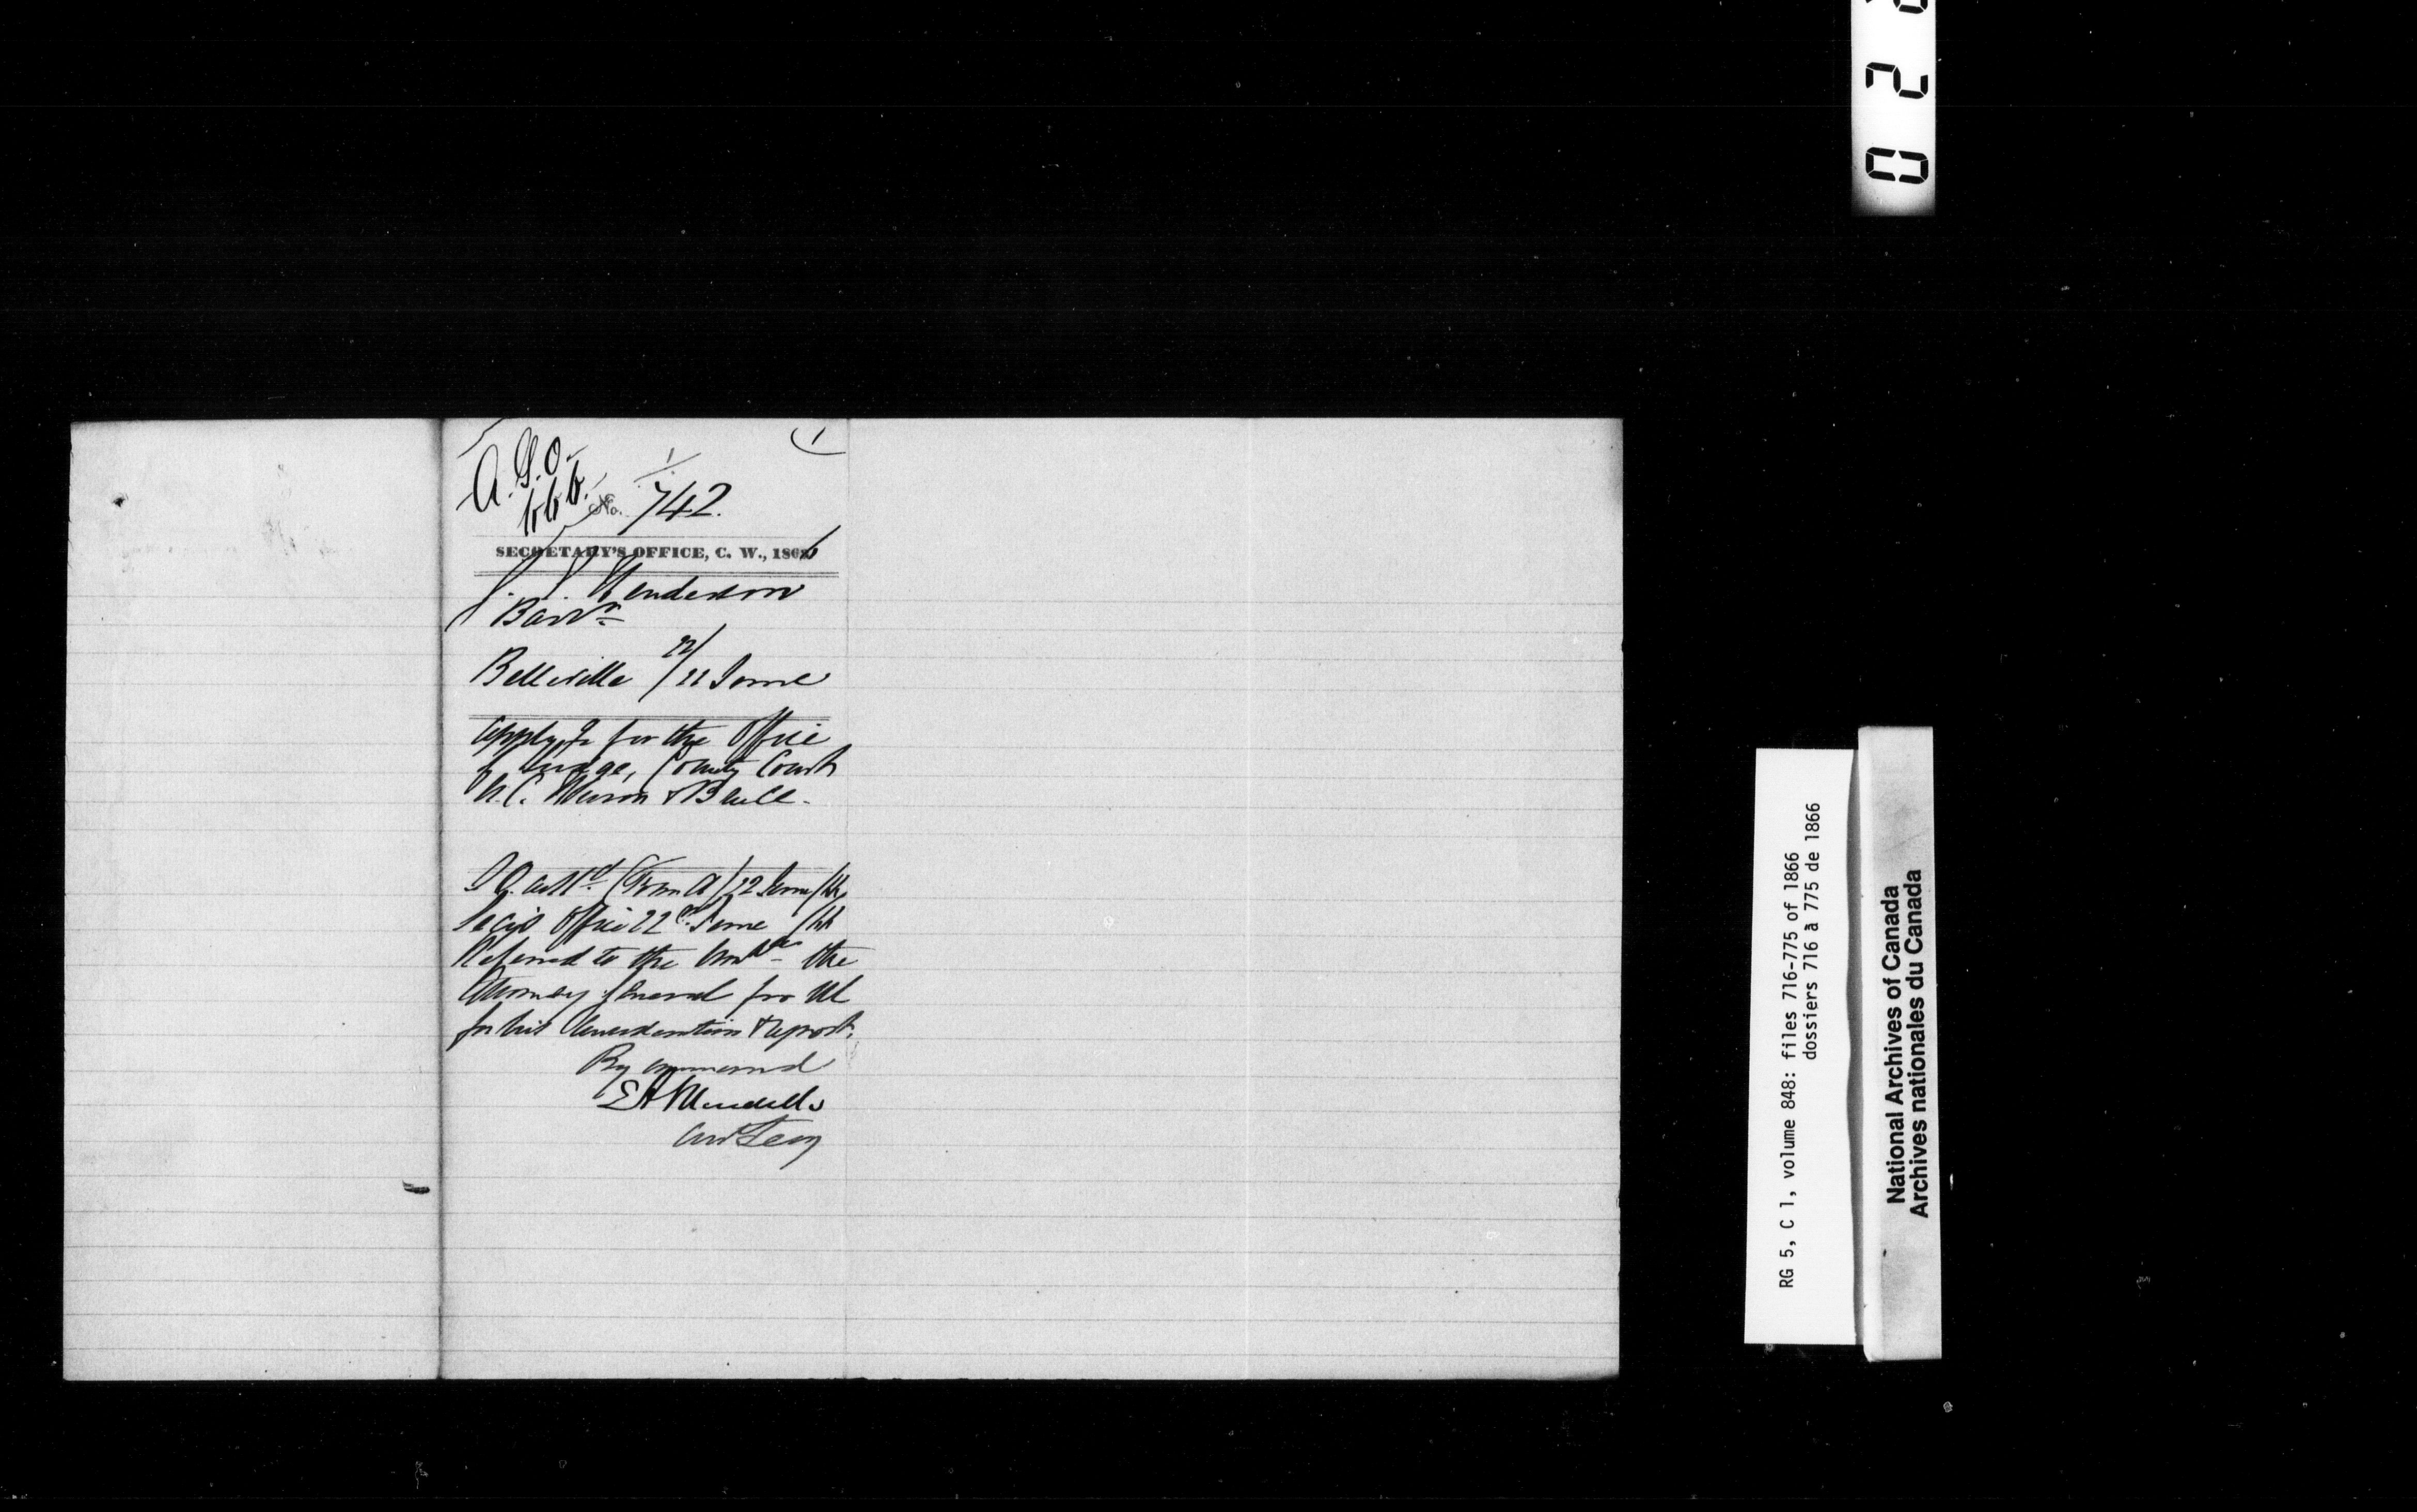 A.G.O.
666.
No. 742.
SECRETARY'S OFFICE, C. W., 1866
J. J. Henderson
Barr
Belleville 22/
apply for the Office
of Judge, County Court
U.C. Huron & Bruce.
(Form A) 22
Office 22
Referred to the the
Attorney General for UC
for his consideration & report.
By command
E A Meredith
RG 5, C 1, volume 848: files 716-775 of 1866
dossiers 716 à 775 de 1866
National Archives of Canada
Archives nationales du Canada
0 2 2